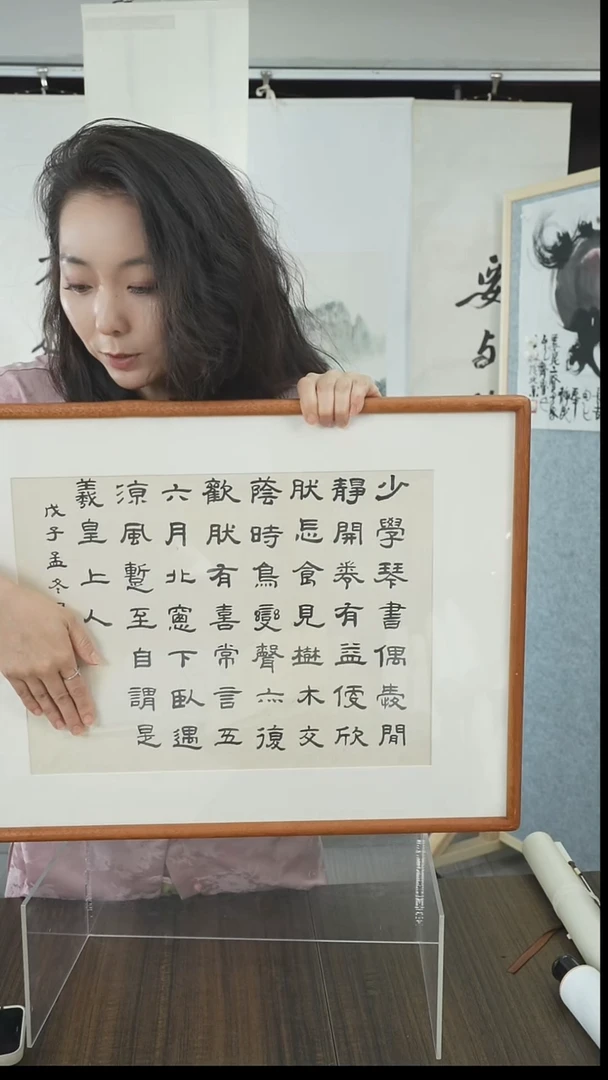 少學琴書偶愛閒
靜開卷有益便欣
肰忘食見樹木交
蔭時鳥變聲亦復
歡肰有喜常言五
六月北窻下臥遇
涼風蹔至自謂是
羲皇上人
戊子孟冬
与